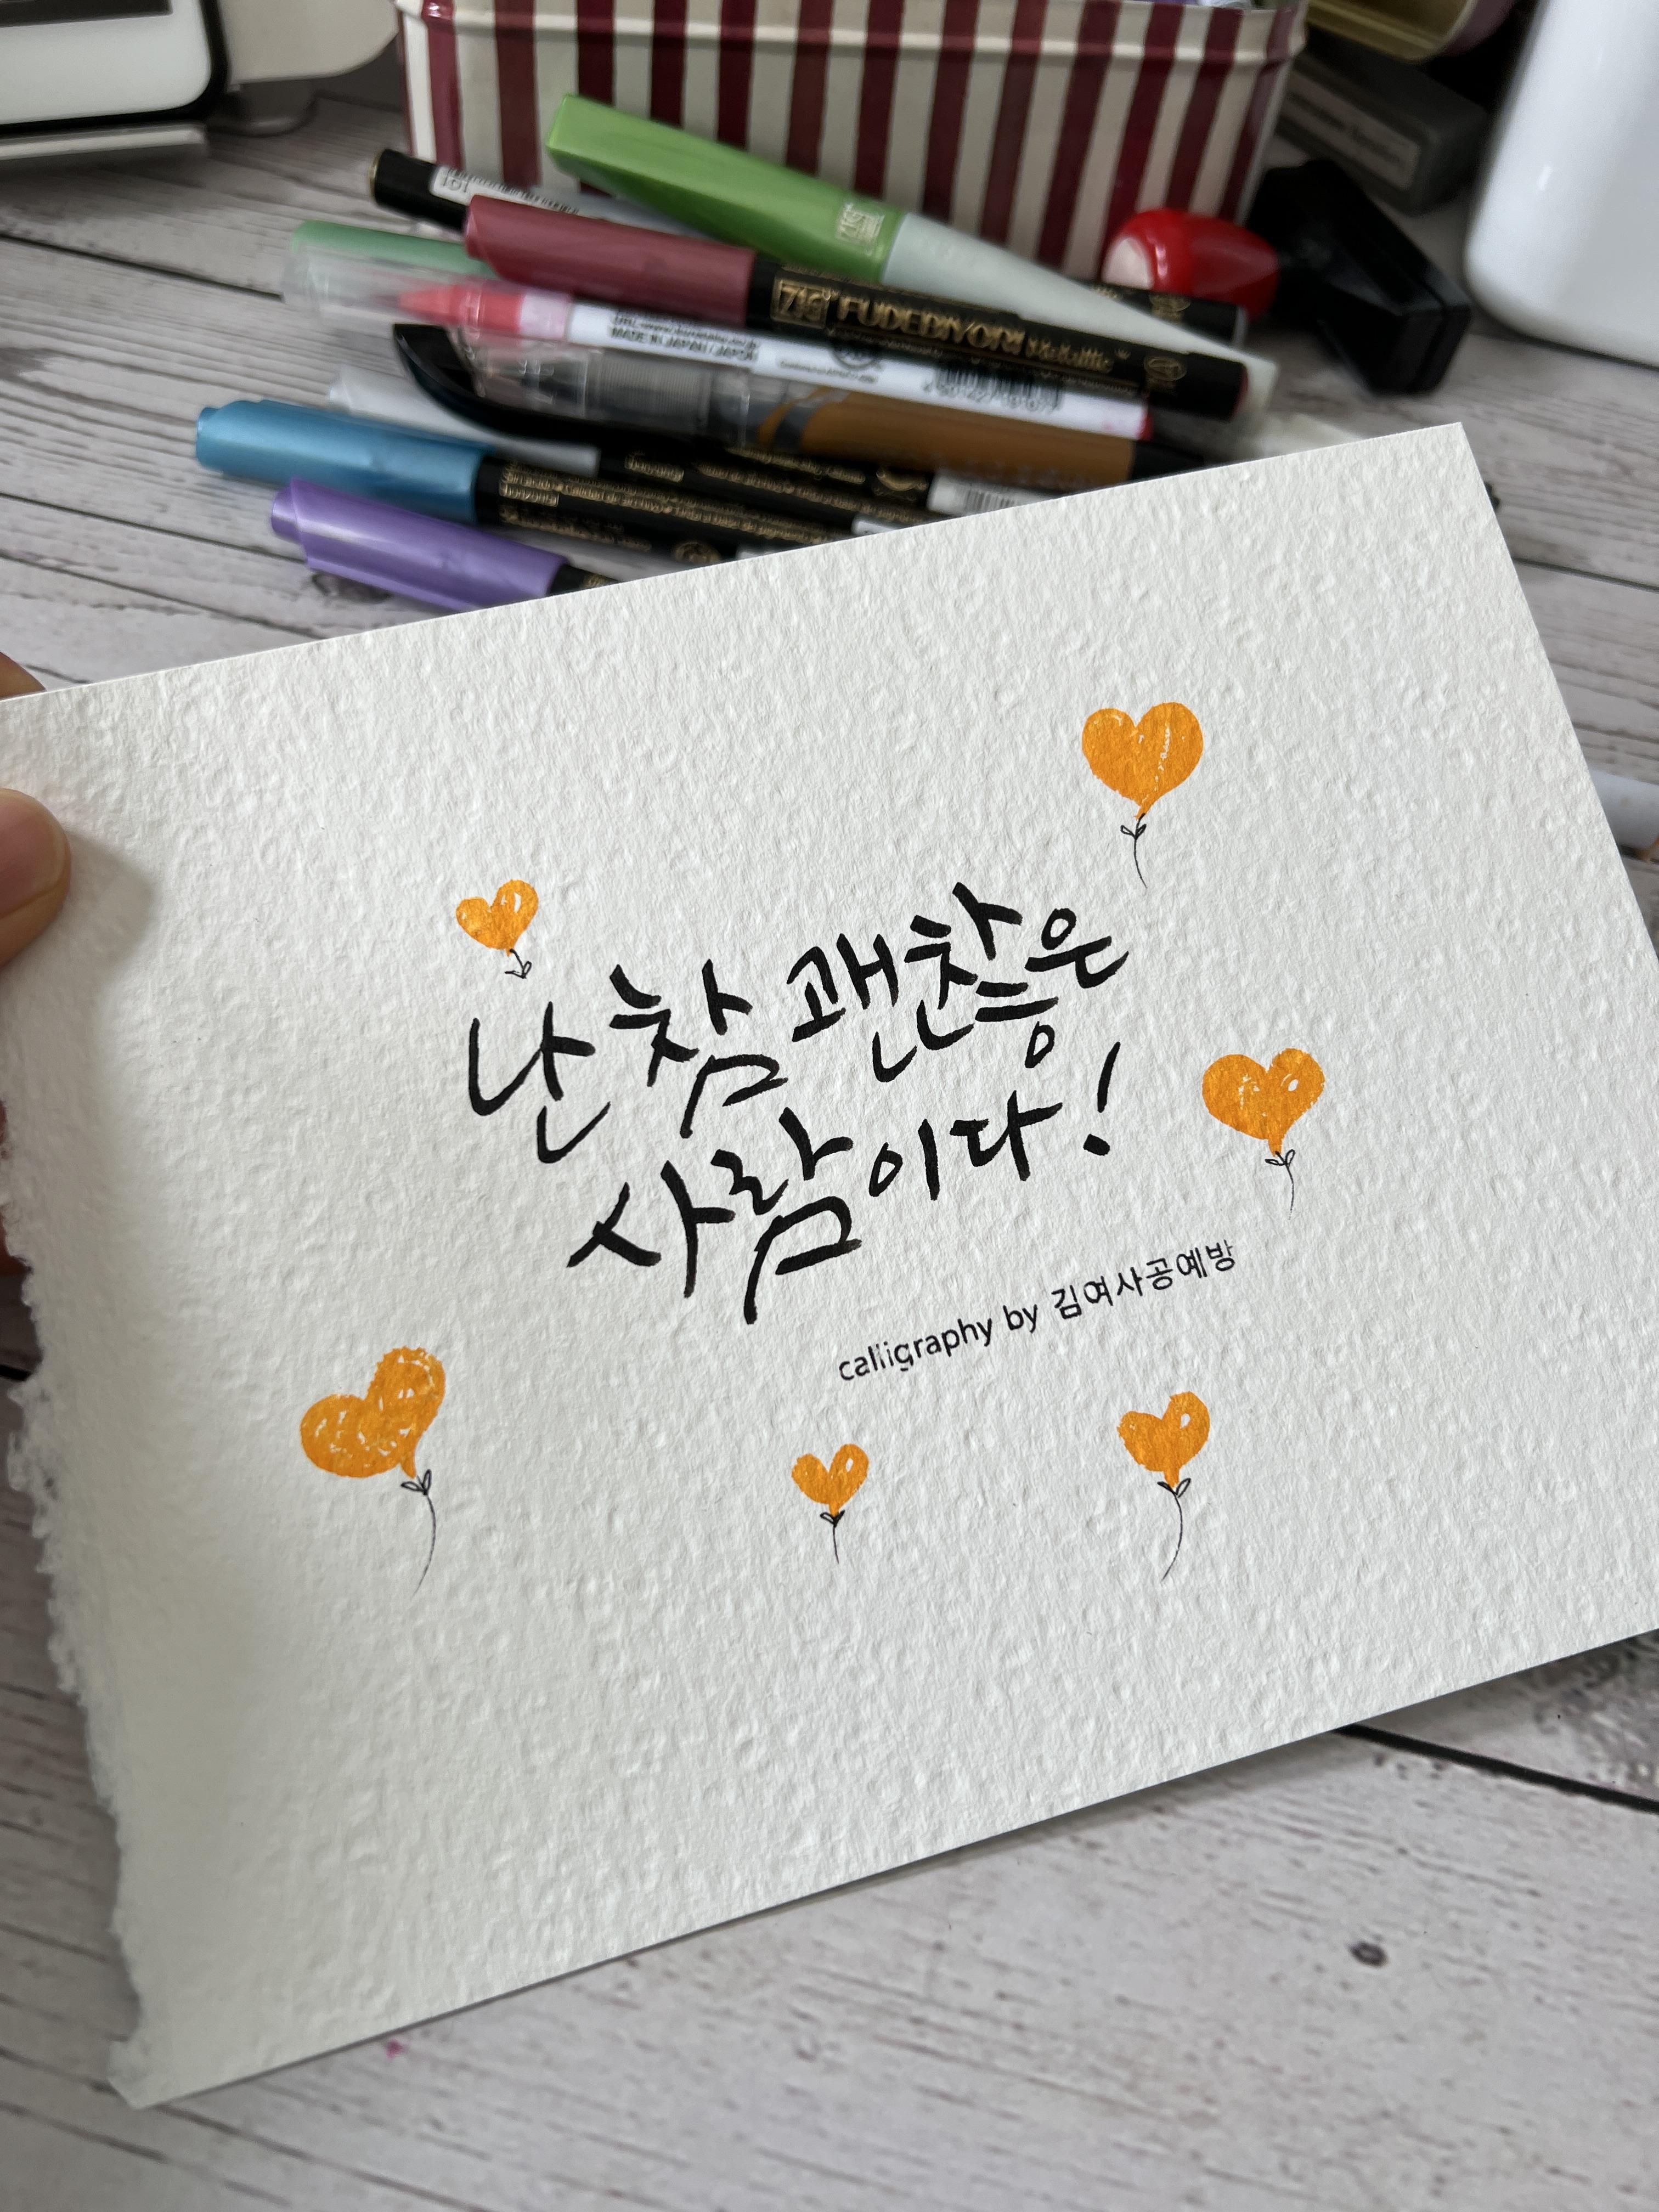 101
ZIG FUDEBIYORI Metallic
MADE IN JAPAN / JAPON
난 참 괜찮은
사람이다!
calligraphy by 김여사공예방